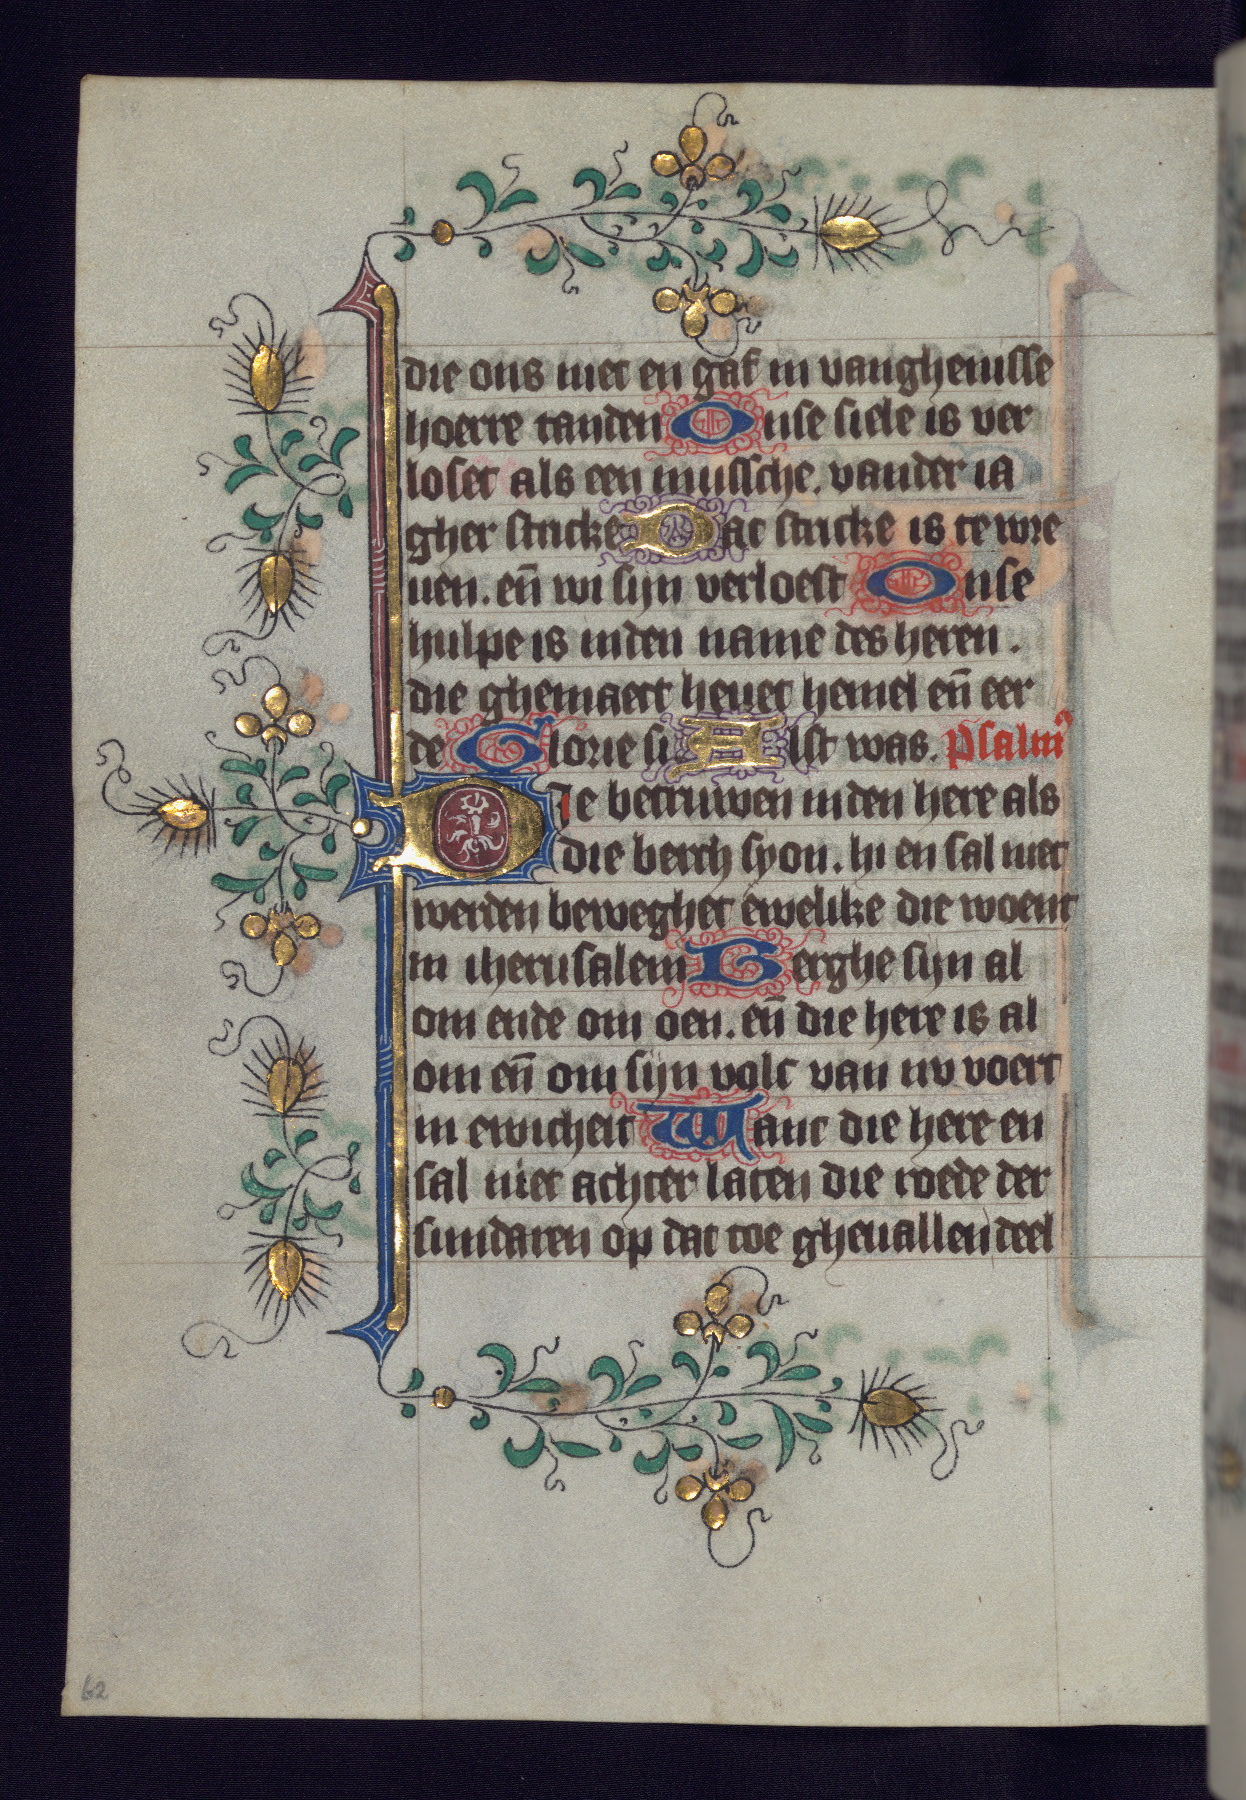 die ons niet en gaf in vanghenisse
hoerre tanden Onse siele is ver
loset als een mussche. vander ia
gher stricke Dat stricke is te wre
uen. en̄ wi sijn verloest Onse
hulpe is inden name des heren.
die ghemaect heuet hemel en̄ eer
de Glorie si Alst was. Psalm᷒
Die betruwen inden here als
die berch syon. hi en sal niet
werden beweghet ewelike die woent
in iherusalem Berghe sijn al
om ende om oen. en̄ die here is al
om en̄ om sijn volc van nv voert
in ewicheit Want die here en
sal niet achter laten die roede der
sundaren op dat toe gheuallen deel
62